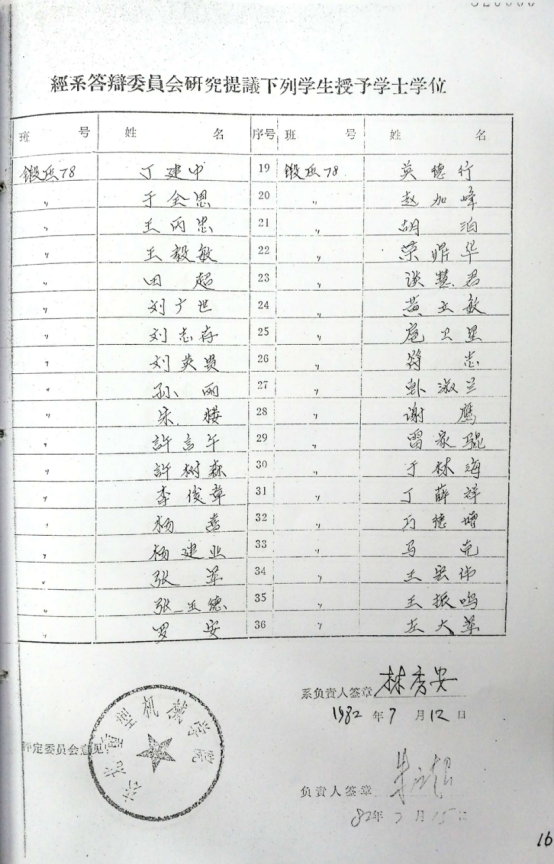 經系答辯委員会研究提議下列学生授予学士学位
班 号 姓 名 序号 班 号 姓 名
锻压78 丁建中 19 锻压78 莫德行
〃 于会思 20 〃 赵加峰
〃 王丙忠 21 〃 胡 珀
〃 王毅敏 22 〃 荣鼎华
〃 田 超 23 〃 谈慧君
〃 刘广世 24 〃 黄立敏
〃 刘志存 25 〃
〃 刘英贵 26 〃 志
〃 孙 丽 27 〃 卧淑兰
〃 宋 楼 28 〃 谢 鹰
〃 許立午 29 〃 雷家琨
〃 許树森 30 〃 于林海
〃 李俊章 31 〃 丁薛祥
〃 杨 喜 32 〃 万德增
〃 杨建业 33 〃 马 克
〃 张 革 34 〃 王宏伟
〃 张玉德 35 〃 王振鸣
〃 罗 安 36 〃 左大華
系负責人签章 林秀安
1982 年 7 月 12 日
东北重型机械学院
评定委员会意见
负責人签章
82年 7 月 15 日
16